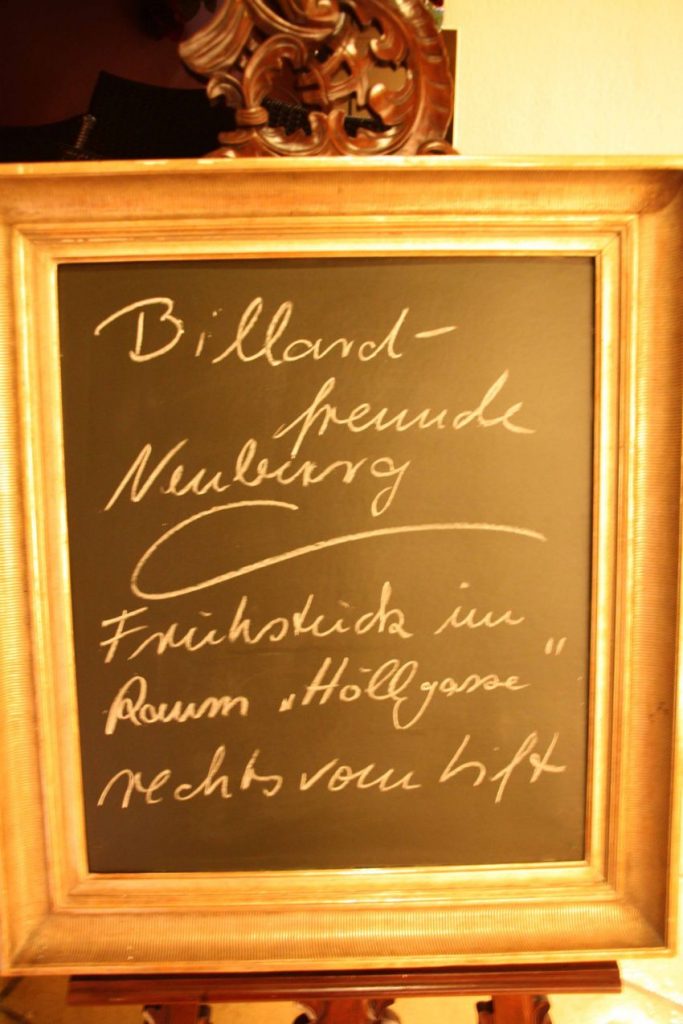 Billard-
freunde
Neuburg
Frühstück im
Raum „Höllgasse"
rechts vom Lift